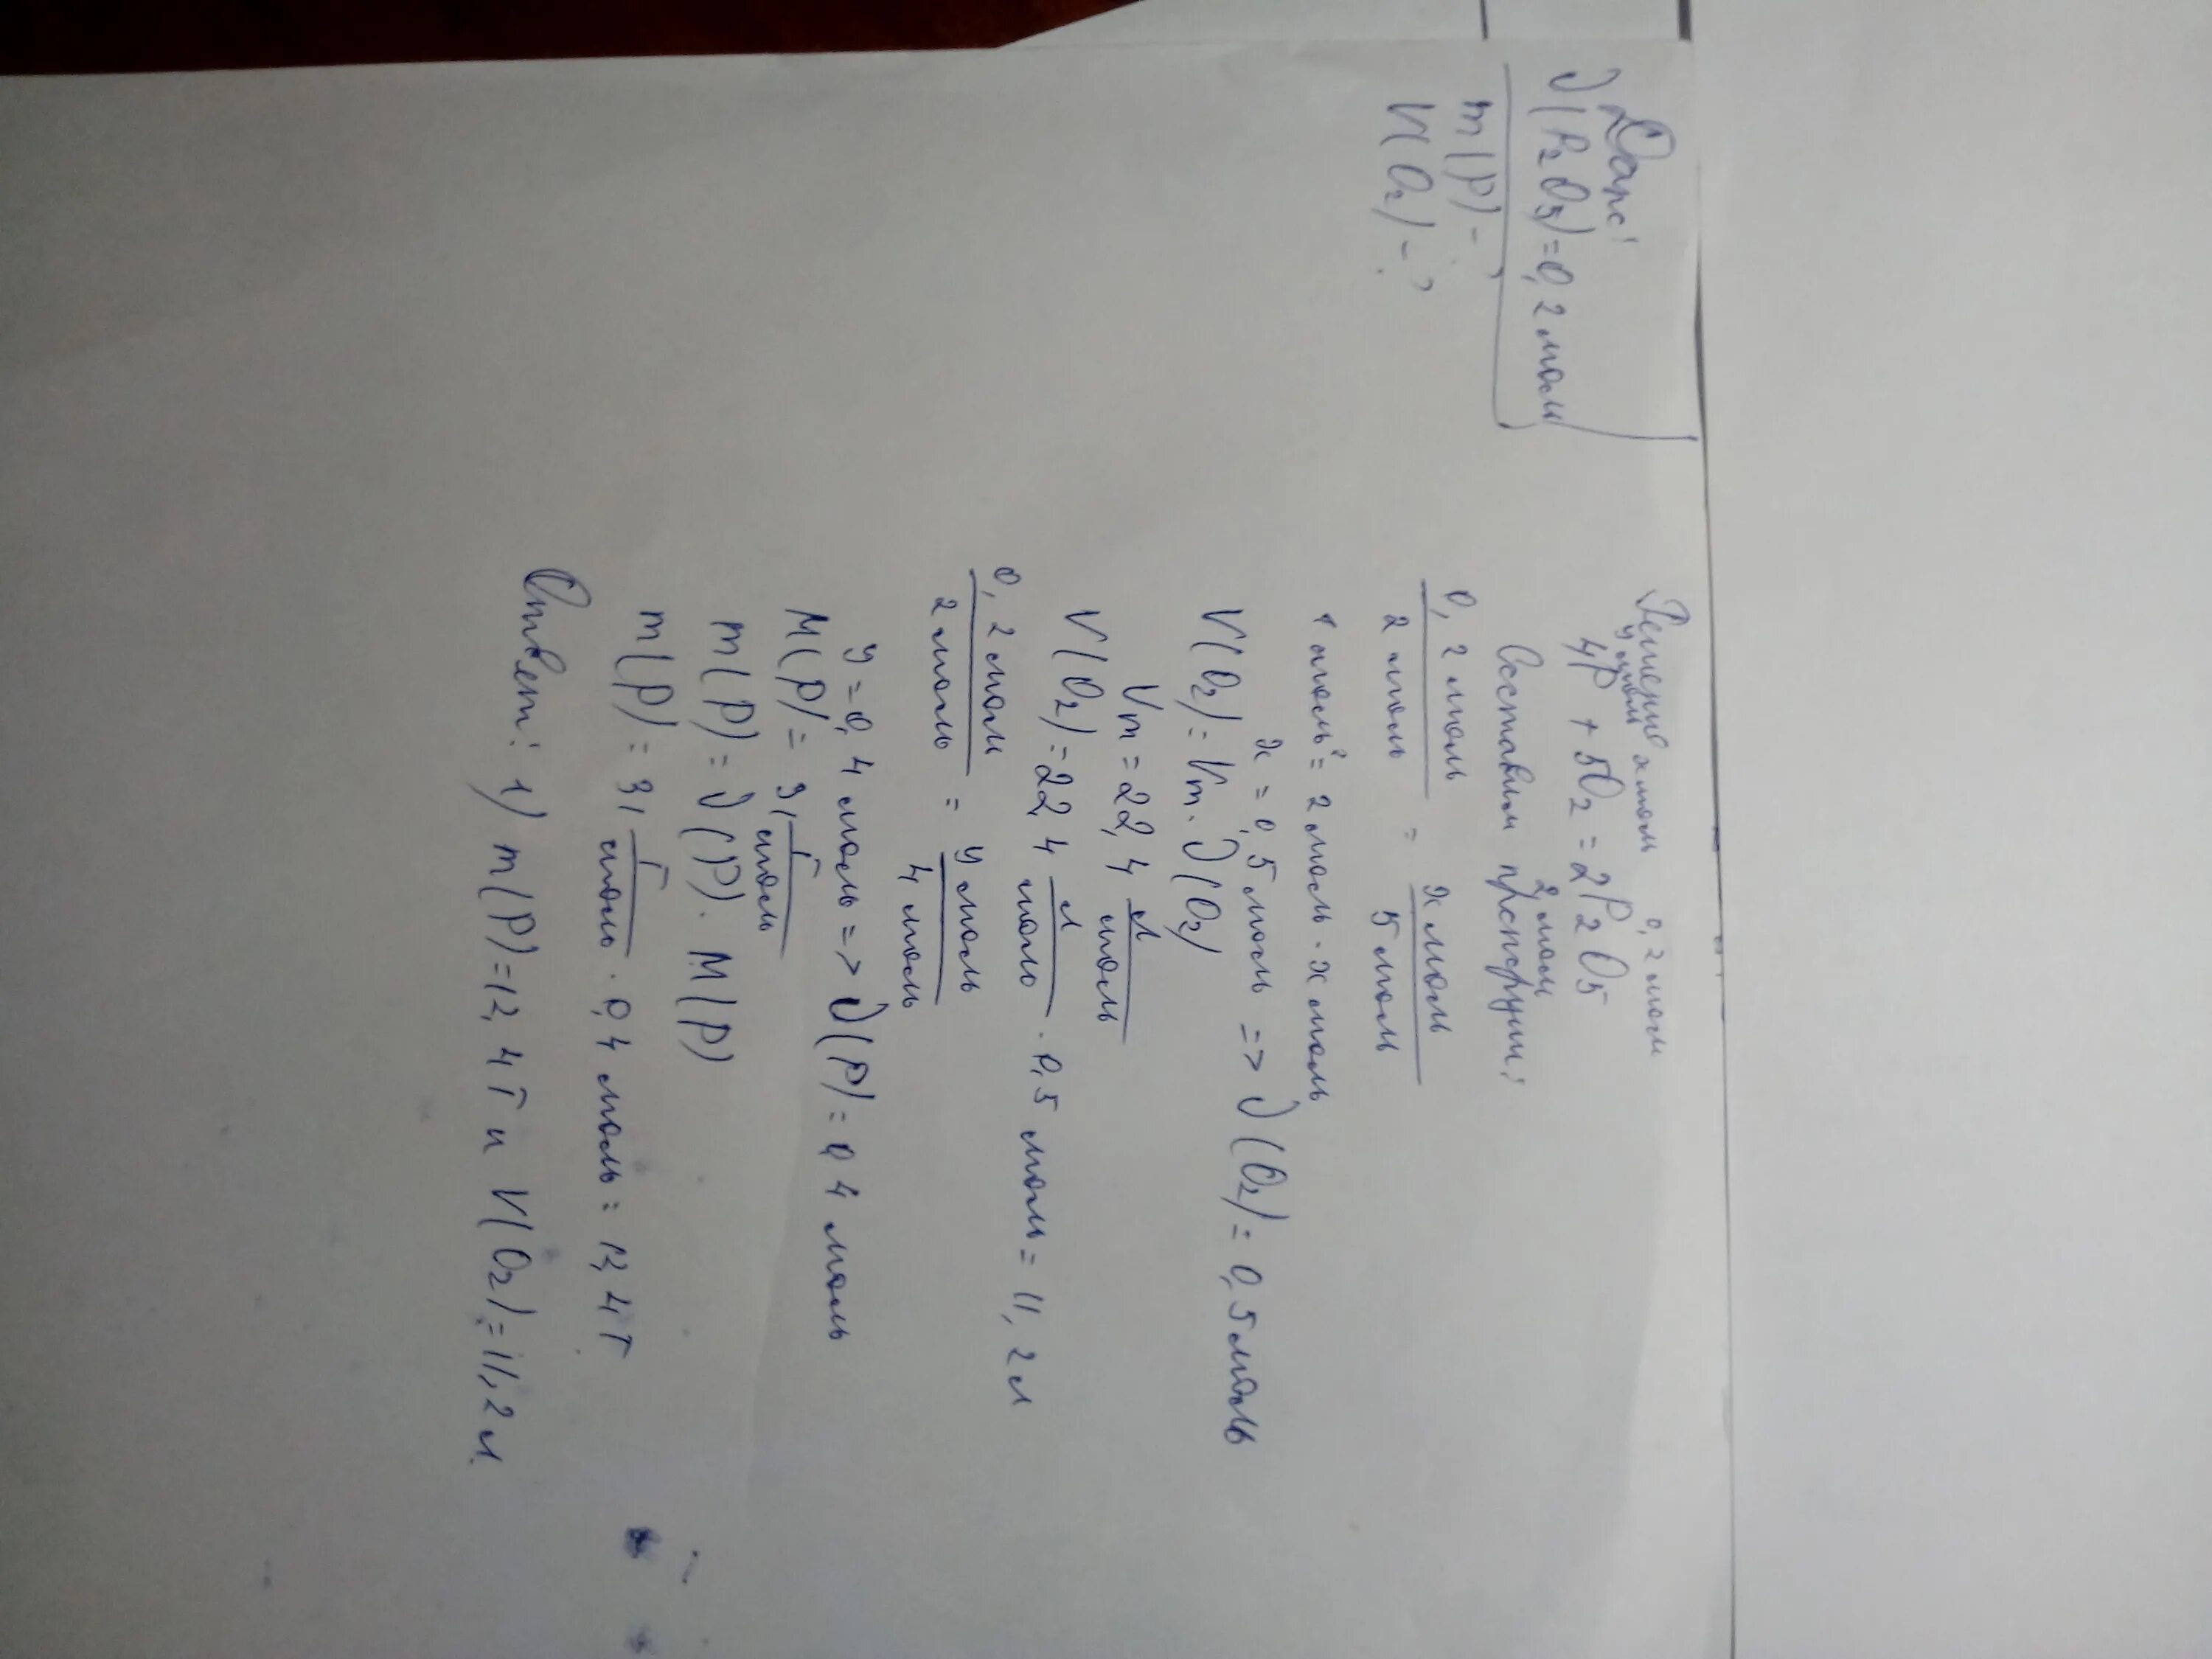 Дано:
ν(P₂O₅)=0,2 моль
m(P)-?
V(O₂)-?
Решение
y моль x моль 0,2 моль
4P + 5O₂ = 2P₂O₅
2 моль
Составим пропорции:
0,2 моль / 2 моль = x моль / 5 моль
1 моль² = 2 моль · x моль
x = 0,5 моль => ν(O₂) = 0,5 моль
V(O₂) = Vm · ν(O₂)
Vm = 22,4 л/моль
V(O₂) = 22,4 л/моль · 0,5 моль = 11,2 л
0,2 моль / 2 моль = y моль / 4 моль
y = 0,4 моль => ν(P) = 0,4 моль
M(P) = 31 г/моль
m(P) = ν(P) · M(P)
m(P) = 31 г/моль · 0,4 моль = 12,4 г
Ответ: 1) m(P) = 12,4 г и V(O₂) = 11,2 л.